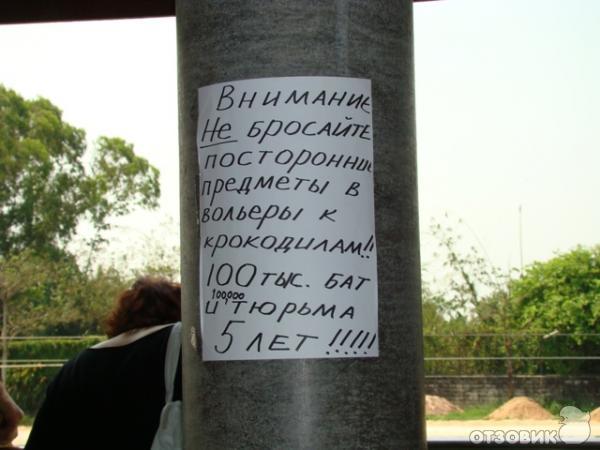 Внимание
Не бросайте
посторонние
предметы в
вольеры к
крокодилам!!
100 тыс. бат
100,000
и тюрьма
5 лет !!!!!
ОТЗОВИК